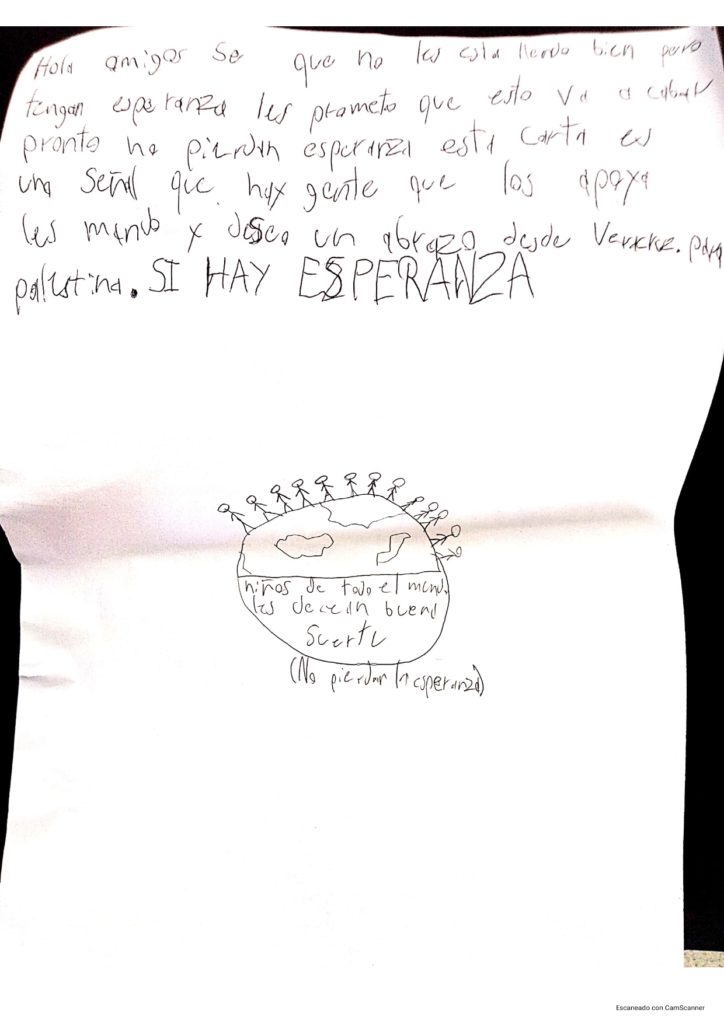 Hola amigos se que no les esta llendo bien pero
tengan esperanza les prometo que esto va a cabar
pronto no pierdan esperanza esta carta es
una señal que hay gente que los apoya
les mando y deseo un abrazo desde Veracruz. para
palestina. SI HAY ESPERANZA
niños de todo el mundo
les decean buena
suerte
(No pierdan la esperanza)
Escaneado con CamScanner